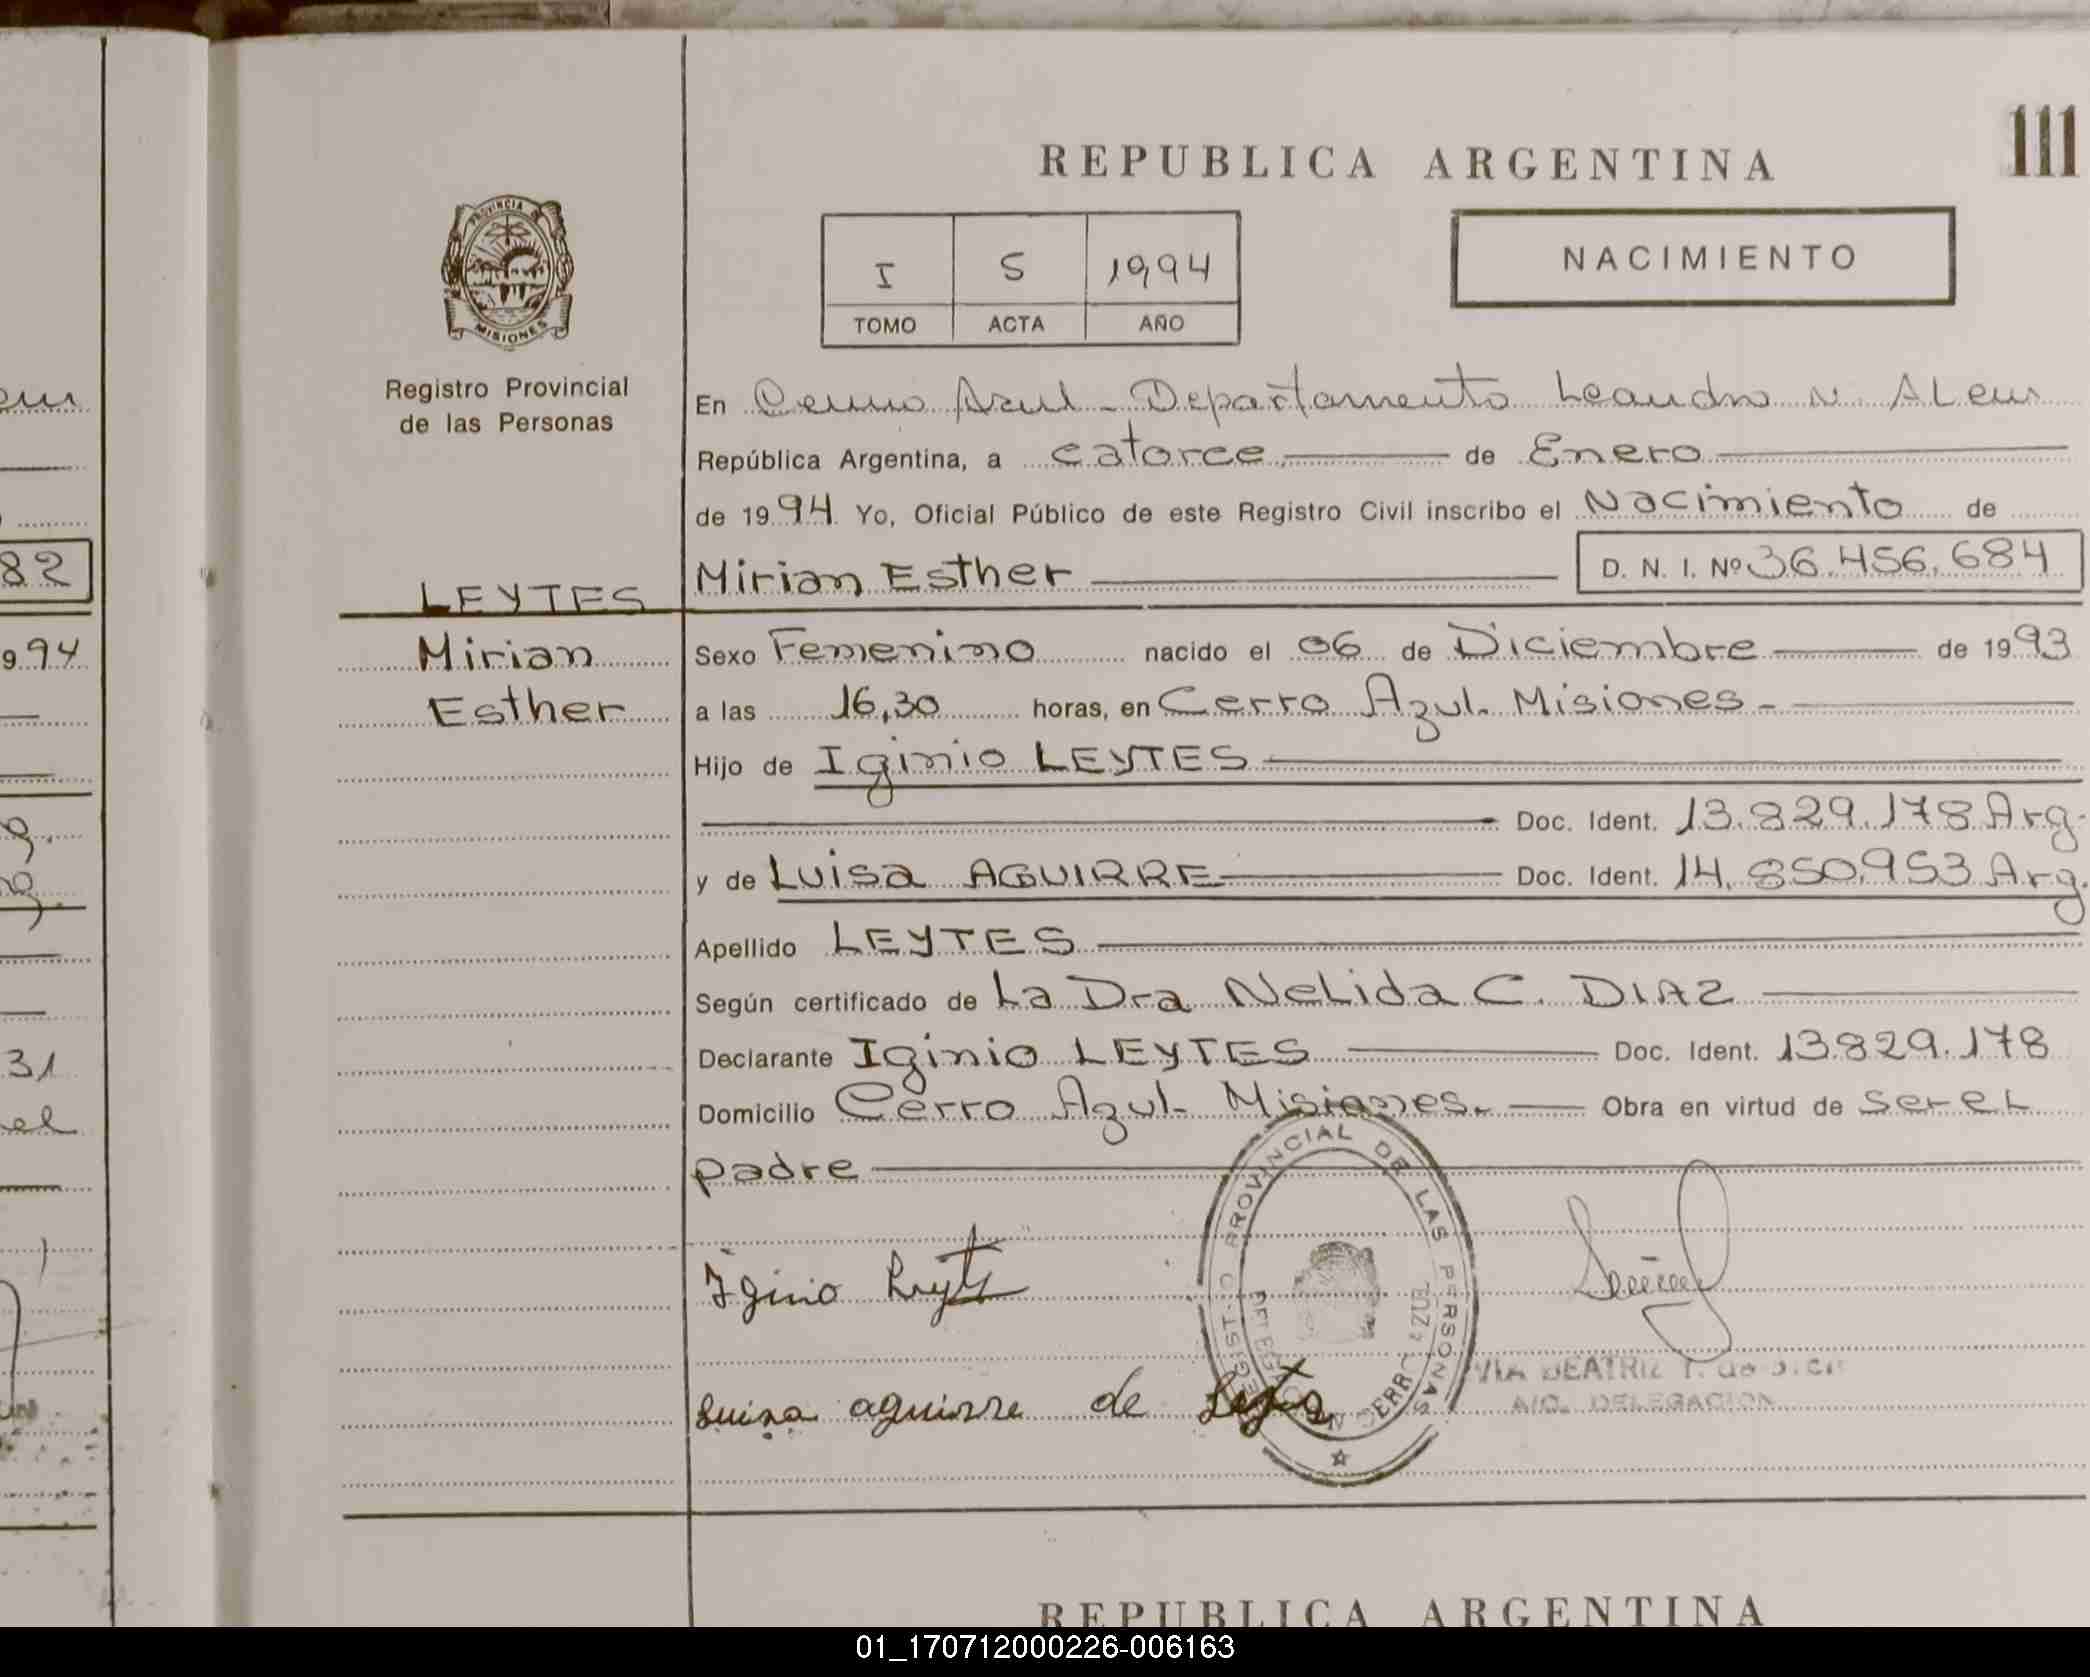 REPUBLICA ARGENTINA
111
I S 1994
TOMO ACTA AÑO
NACIMIENTO
PROVINCIA DE
MISIONES
Registro Provincial
de las Personas
En Cerro Azul - Departamento Leandro N. ALem
República Argentina, a catorce de Enero
de 1994 Yo, Oficial Público de este Registro Civil inscribo el Nacimiento de
Mirian Esther D. N. I. Nº 36.456.684
LEYTES
Mirian
Esther
Sexo Femenino nacido el 06 de Diciembre de 1993
a las 16,30 horas, en Cerro Azul. Misiones -
Hijo de Iginio LEYTES
Doc. Ident. 13.829.178 Arg.
y de Luisa AGUIRRE Doc. Ident. 14.850.953 Arg.
Apellido LEYTES
Según certificado de La Dra NeLida C. DIAZ
Declarante Iginio LEYTES Doc. Ident. 13.829.178
Domicilio Cerro Azul - Misiones. Obra en virtud de ser eL
padre
Iginio Leytes
Luisa aguirre de
PROVINCIAL DE LAS PERSONAS
BEATRIZ
A/C. DELEGACION
82
994
31
el
REPUBLICA ARGENTINA
01_170712000226-006163